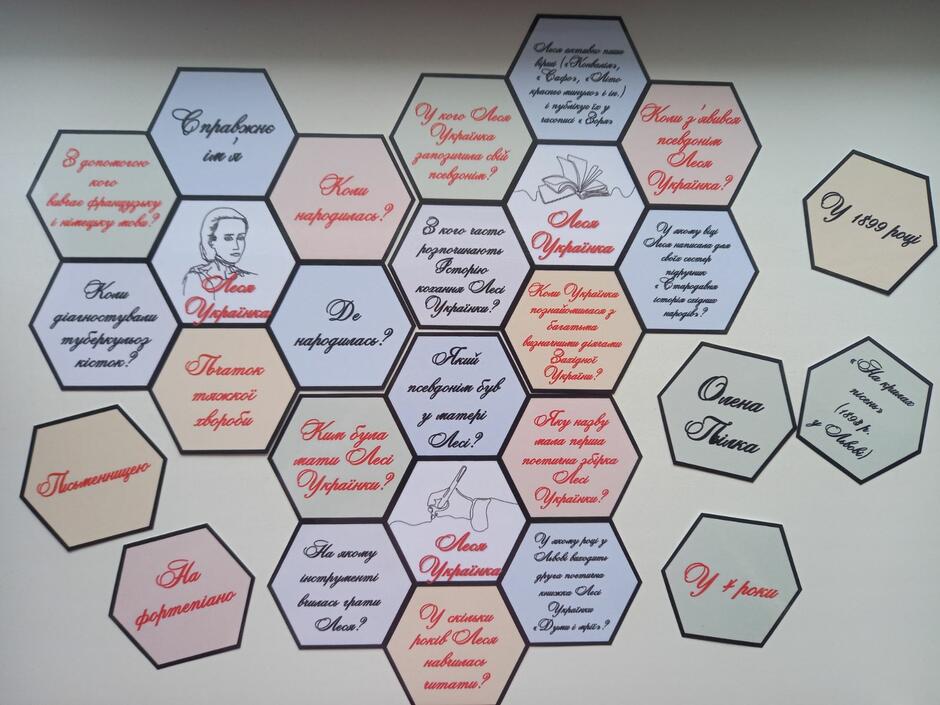 Леся активно пише
вірші («Конвалія»,
«Сафо», «Літо
краснеє минуло» і ін.)
і публікує їх у
часописі «Зоря»
Справжнє
ім'я
У кого Леся
Українка
запозичила свій
псевдонім?
Коли з'явився
псевдонім
Леся
Українка?
З допомогою
кого
вивчає французьку
і німецьку мови?
Коли
народилась?
Леся
Українка
У 1899 році
Леся
Українка
З кого часто
розпочинають
Історію
кохання Лесі
Українки?
У якому віці
Леся написала для
своїх сестер
підручник
«Стародавня
історія східних
народів»?
Коли
діагностували
туберкульоз
кісток?
Де
народилась?
Коли Українка
познайомилася з
багатьма
визначними діячами
Західної
України?
Початок
тяжкої
хвороби
Який
псевдонім був
у матері
Лесі?
Олена
Пчілка
«На крилах
пісень»
(1893 р.
у Львові)
Ким була
мати Лесі
Українки?
Яку назву
мала перша
поетична збірка
Лесі
Українки?
Письменницею
Леся
Українка
На
фортепіано
На якому
інструменті
вчилась грати
Леся?
У якому році у
Львові виходить
друга поетична
книжка Лесі
Українки
«Думи і мрії»?
У 4 роки
У скільки
років Леся
навчилась
читати?